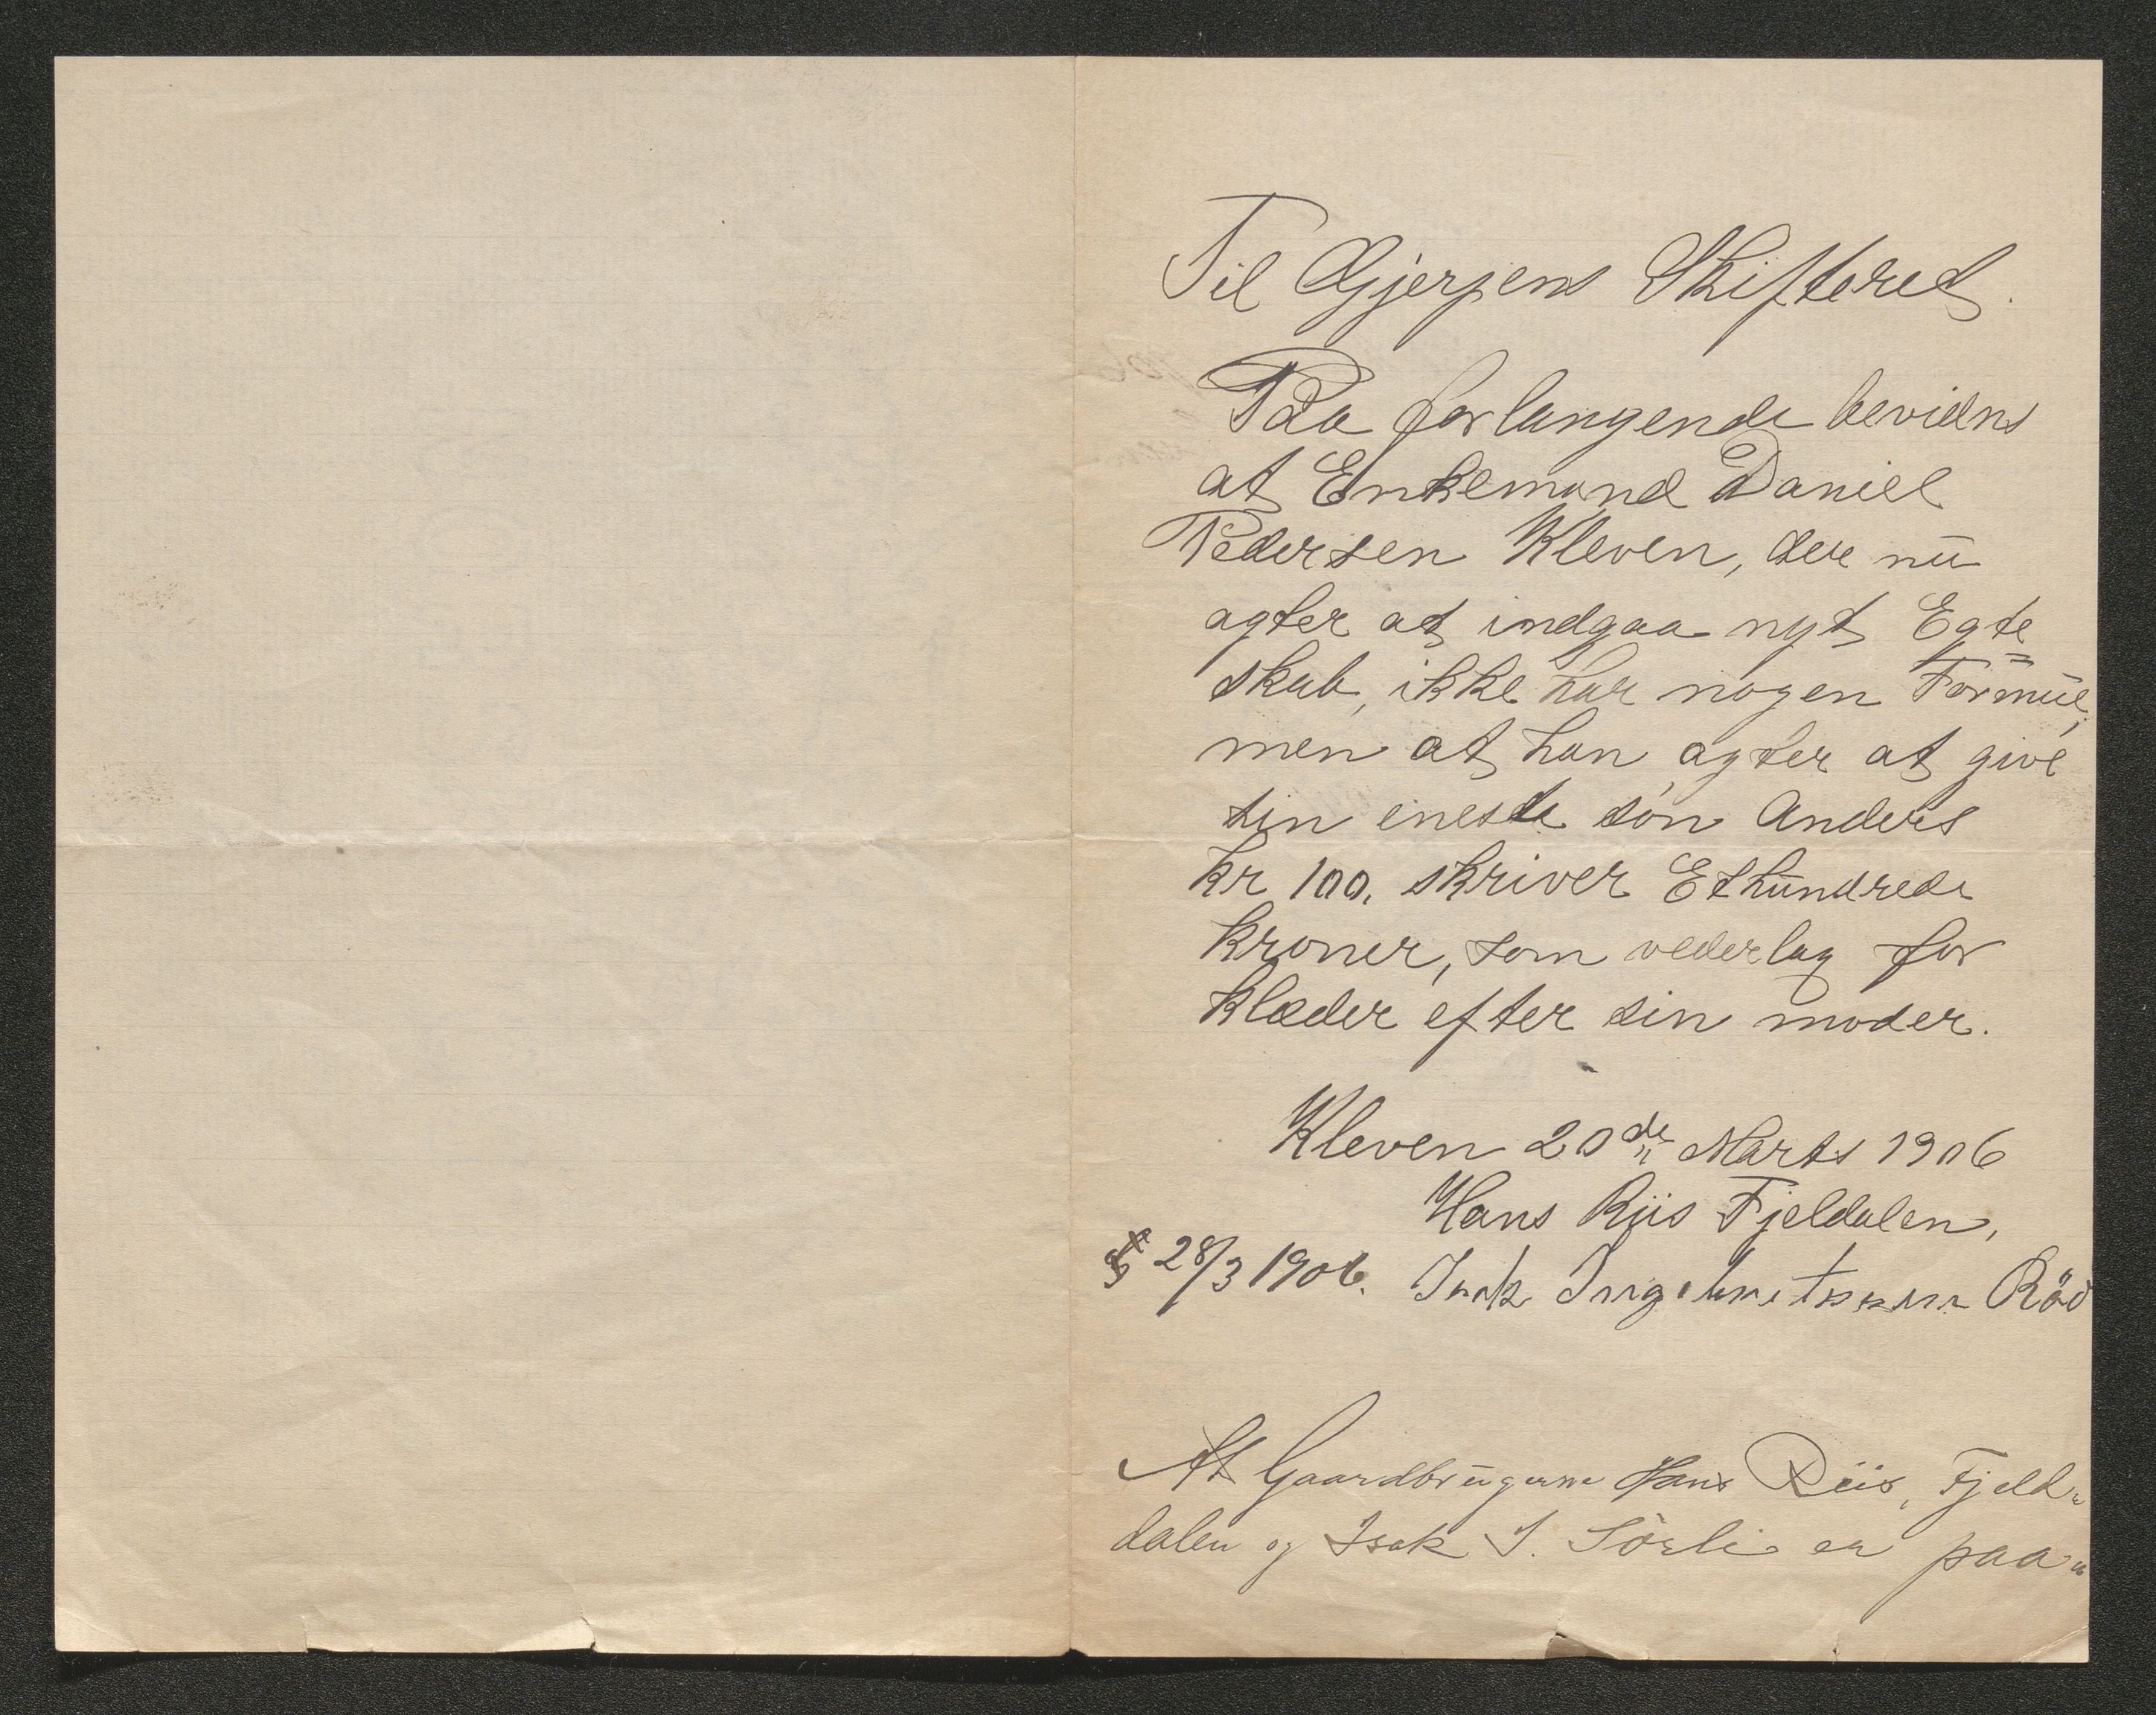 Til Gjerpens Skifteret.
Paa forlangende bevidns
at Enkemand Daniel
Pedersen Kleven, der nu
agter at indgaa nyt Egte
skab, ikke har nogen Formue,
men at han agter at give
sin eneste søn Anders
kr 100, skriver Ethundrede
kroner, som vederlag for
klæder efter sin moder.
Kleven 20de Marts 1906
Hans Riis Fjeldalen,
28/3 1906. Isak Röd
At Gaardbrugerne Hans Riis, Fjeld-
dalen og Isak I. Sörli er paa-